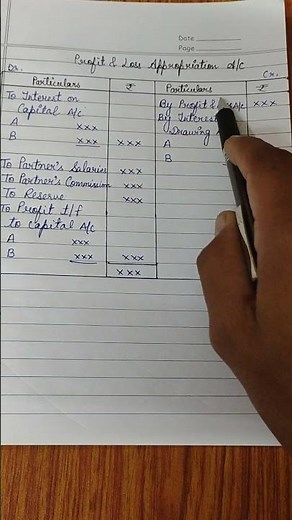 Date
Page
Profit & Loss Appropriation A/c
Dr.
Cr.
Particulars ₹ Particulars ₹
To Interest on
Capital A/c
A xxx
B xxx xxx
To Partner's Salaries xxx
To Partner's Commission xxx
To Reserve xxx
To Profit t/f
to Capital A/c
A xxx
B xxx xxx
xxx
By Profit & A/c xxx
By Interest
Drawing
A
B